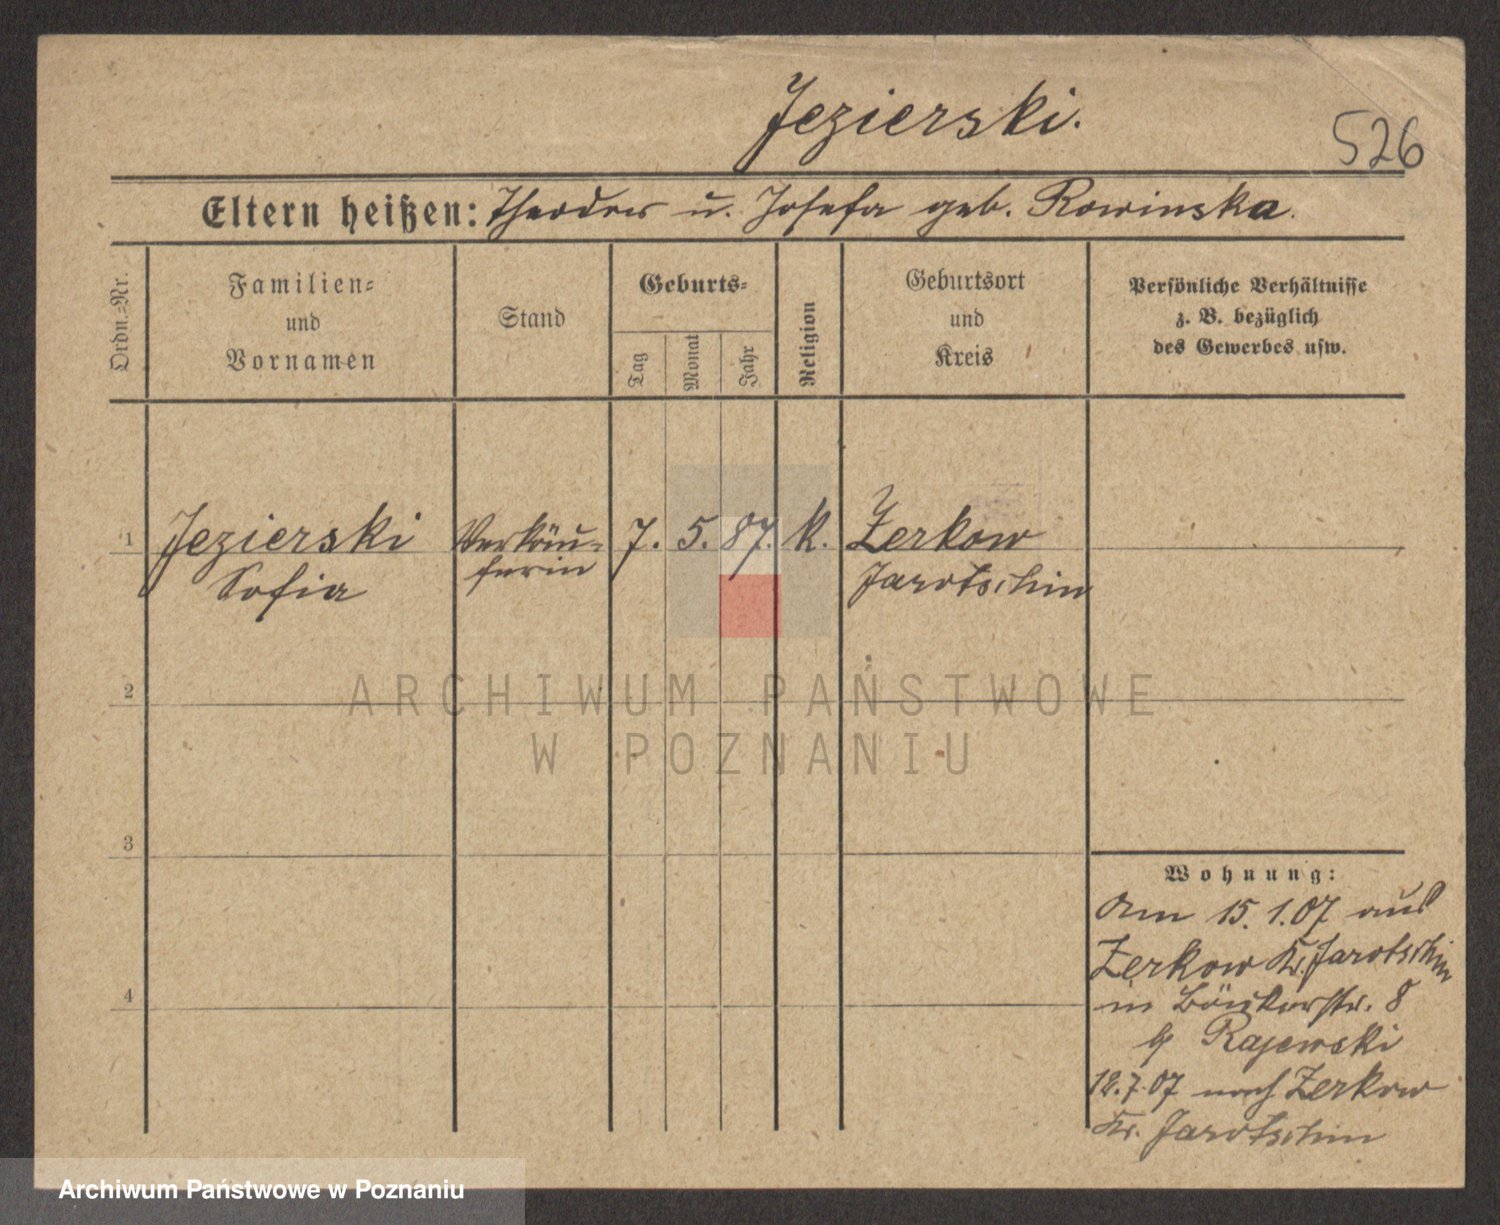 Jezierski.
526
Eltern heißen: Theodor u. Josefa geb. Rowinska.
Ordn.-Nr.
Familien-
und
Vornamen
Stand
Geburts-
Tag
Monat
Jahr
Religion
Geburtsort
und
Kreis
Persönliche Verhältnisse
z. B. bezüglich
des Gewerbes usw.
1
Jezierski
Sofia
Verkäu-
ferin
7. 5. 87. k.
Zerkow
Jarotschin
2
ARCHIWUM PAŃSTWOWE
W POZNANIU
3
4
Wohnung:
Am 15.1.07 aus
Zerkow Kr. Jarotschin
in Bäckerstr. 8
b/ Rajewski
12.7.07 nach Zerkow
Kr. Jarotschin
Archiwum Państwowe w Poznaniu